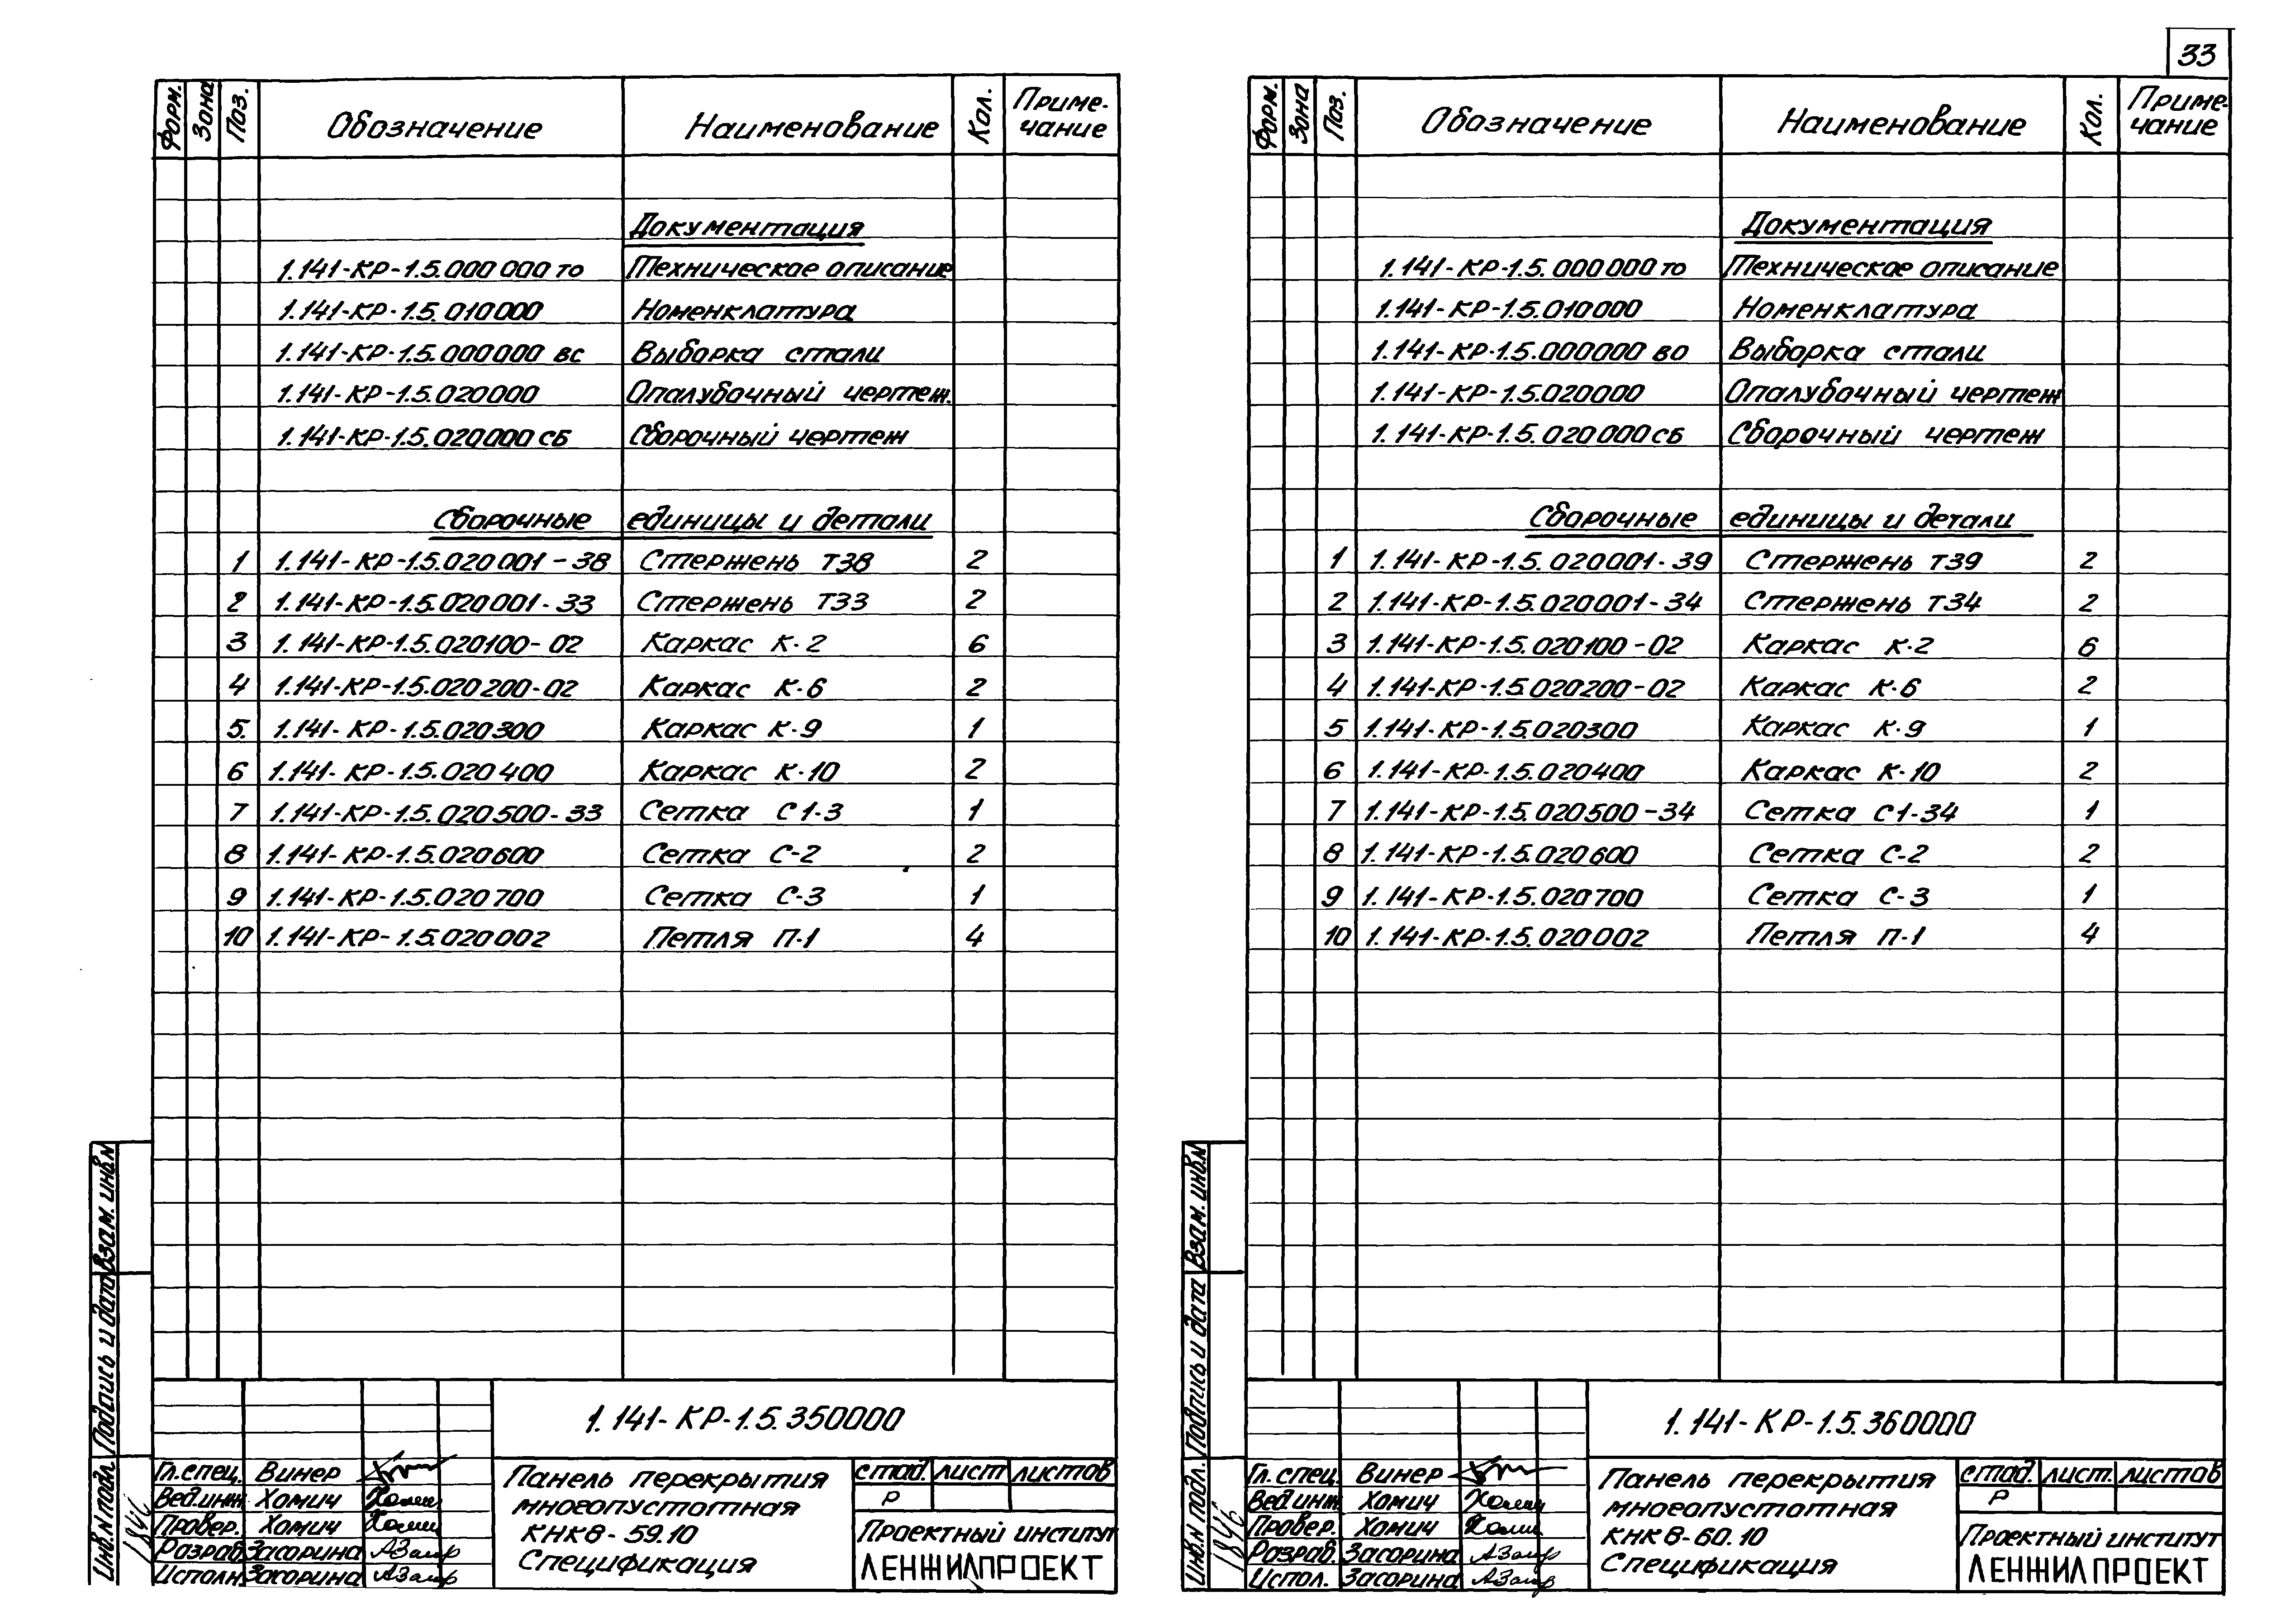 33
Форм. Зона Поз. Обозначение Наименование Кол. Приме-
чание
Документация
1.141-КР-1.5.000 000 то Техническое описание
1.141-КР-1.5.010000 Номенклатура
1.141-КР-1.5.000000 вс Выборка стали
1.141-КР-1.5.020000 Опалубочный чертеж.
1.141-КР-1.5.020000 сб Сборочный чертеж
Сборочные единицы и детали
1 1.141-КР-1.5.020 001-38 Стержень т38 2
2 1.141-КР-1.5.020 001-33 Стержень т33 2
3 1.141-КР-1.5.020100-02 Каркас К-2 6
4 1.141-КР-1.5.020 200-02 Каркас К-6 2
5 1.141-КР-1.5.020300 Каркас К-9 1
6 1.141-КР-1.5.020 400 Каркас К-10 2
7 1.141-КР-1.5.020 500-33 Сетка С1-3 1
8 1.141-КР-1.5.020600 Сетка С-2 2
9 1.141-КР-1.5.020 700 Сетка С-3 1
10 1.141-КР-1.5.020 002 Петля П-1 4
Взам. инв.N
Подпись и дата
Инв.N подл.
1846
1.141-КР-1.5.350000
Гл.спец. Винер
Вед.инж. Хомич
Провер. Хомич
Разраб. Засорина
Исполн. Засорина
Панель перекрытия
многопустотная
КНК8-59.10
Спецификация
стад. лист листов
Р
Проектный институт
ЛЕНЖИЛПРОЕКТ
Форм. Зона Поз. Обозначение Наименование Кол. Приме-
чание
Документация
1.141-КР-1.5.000000 то Техническое описание
1.141-КР-1.5.010000 Номенклатура
1.141-КР-1.5.000000 во Выборка стали
1.141-КР-1.5.020000 Опалубочный чертеж
1.141-КР-1.5.020 000 сб Сборочный чертеж
Сборочные единицы и детали
1 1.141-КР-1.5.020001-39 Стержень т39 2
2 1.141-КР-1.5.020001-34 Стержень т34 2
3 1.141-КР-1.5.020100-02 Каркас К-2 6
4 1.141-КР-1.5.020200-02 Каркас К-6 2
5 1.141-КР-1.5.020300 Каркас К-9 1
6 1.141-КР-1.5.020400 Каркас К-10 2
7 1.141-КР-1.5.020500-34 Сетка С1-34 1
8 1.141-КР-1.5.020600 Сетка С-2 2
9 1.141-КР-1.5.020 700 Сетка С-3 1
10 1.141-КР-1.5.020002 Петля П-1 4
Взам. инв.N
Подпись и дата
Инв.N подл.
1846
1.141-КР-1.5.360000
Гл. спец. Винер
Вед.инж. Хомич
Провер. Хомич
Разраб. Засорина
Испол. Засорина
Панель перекрытия
многопустотная
КНК8-60.10
Спецификация
стад. лист. листов
Р
Проектный институт
ЛЕНЖИЛПРОЕКТ